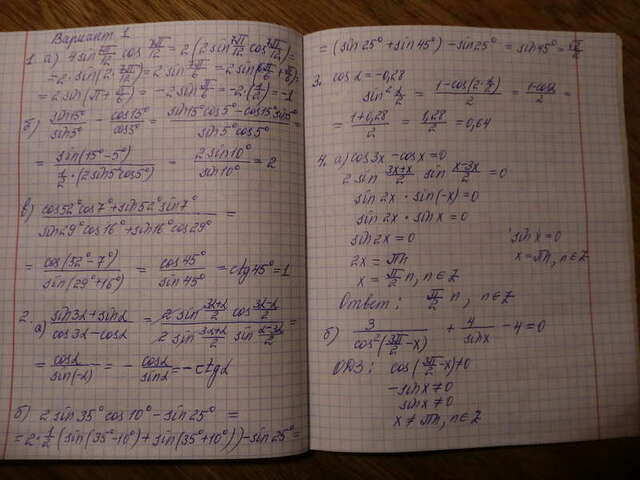 Вариант 1
1. а) 4 sin 7π/12 cos 7π/12 = 2(2 sin 7π/12 cos 7π/12) =
= 2·sin(2·7π/12) = 2 sin 7π/6 = 2 sin(6π/6 + π/6) =
= 2 sin(π + π/6) = -2 sin π/6 = -2·(1/2) = -1
б) sin15°/sin5° - cos15°/cos5° = (sin15°cos5° - cos15°sin5°)/(sin5°cos5°) =
= sin(15°-5°)/(1/2·(2sin5°cos5°)) = 2sin10°/sin10° = 2
в) (cos52°cos7° + sin52°sin7°)/(sin29°cos16° + sin16°cos29°) =
= cos(52°-7°)/sin(29°+16°) = cos45°/sin45° = ctg45° = 1
2. а) (sin3α + sinα)/(cos3α - cosα) = (2 sin (3α+α)/2 cos (3α-α)/2)/(2 sin (3α+α)/2 sin (α-3α)/2) =
= cosα/sin(-α) = - cosα/sinα = -ctgα
б) 2 sin35°cos10° - sin25° =
= 2·1/2(sin(35°-10°) + sin(35°+10°)) - sin25° =
= (sin25° + sin45°) - sin25° = sin45° = √2/2
3. cosα = -0,28
sin² α/2 = (1-cos(2·α/2))/2 = (1-cosα)/2 =
= (1+0,28)/2 = 1,28/2 = 0,64
4. а) cos3x - cosx = 0
2 sin (3x+x)/2 sin (x-3x)/2 = 0
sin2x · sin(-x) = 0
sin2x · sinx = 0
sin2x = 0 sinx = 0
2x = πn x = πn, n∈Z
x = π/2 n, n∈Z
Ответ: π/2 n, n∈Z
б) 3/cos²(3π/2 - x) + 4/sinx - 4 = 0
ОДЗ: cos(3π/2 - x) ≠ 0
-sinx ≠ 0
sinx ≠ 0
x ≠ πn, n∈Z